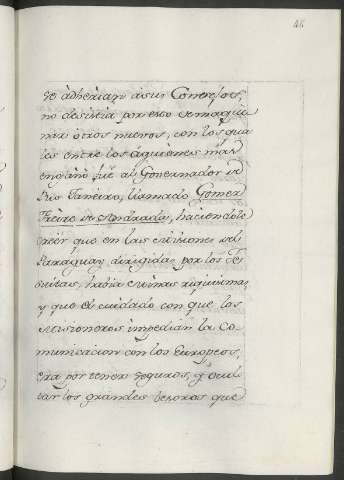 se adherian à sus Consejos,
no desistia por esto de maqui
nar otros nuevos, con los qua
les entre los àquienes mas
engañó fuè al Governador de
Rio Janeiro, llamado Gomez
Freire de Andrada, haciendole
creér que en las misiones del
Paraguay dirigidas por los Je
suitas, havia minas riquisimas
y que el cuidado con que los
Misioneros impedian la Co-
municacion con los Europeos,
era por tener seguros, y ocul
tar los grandes tesoros que